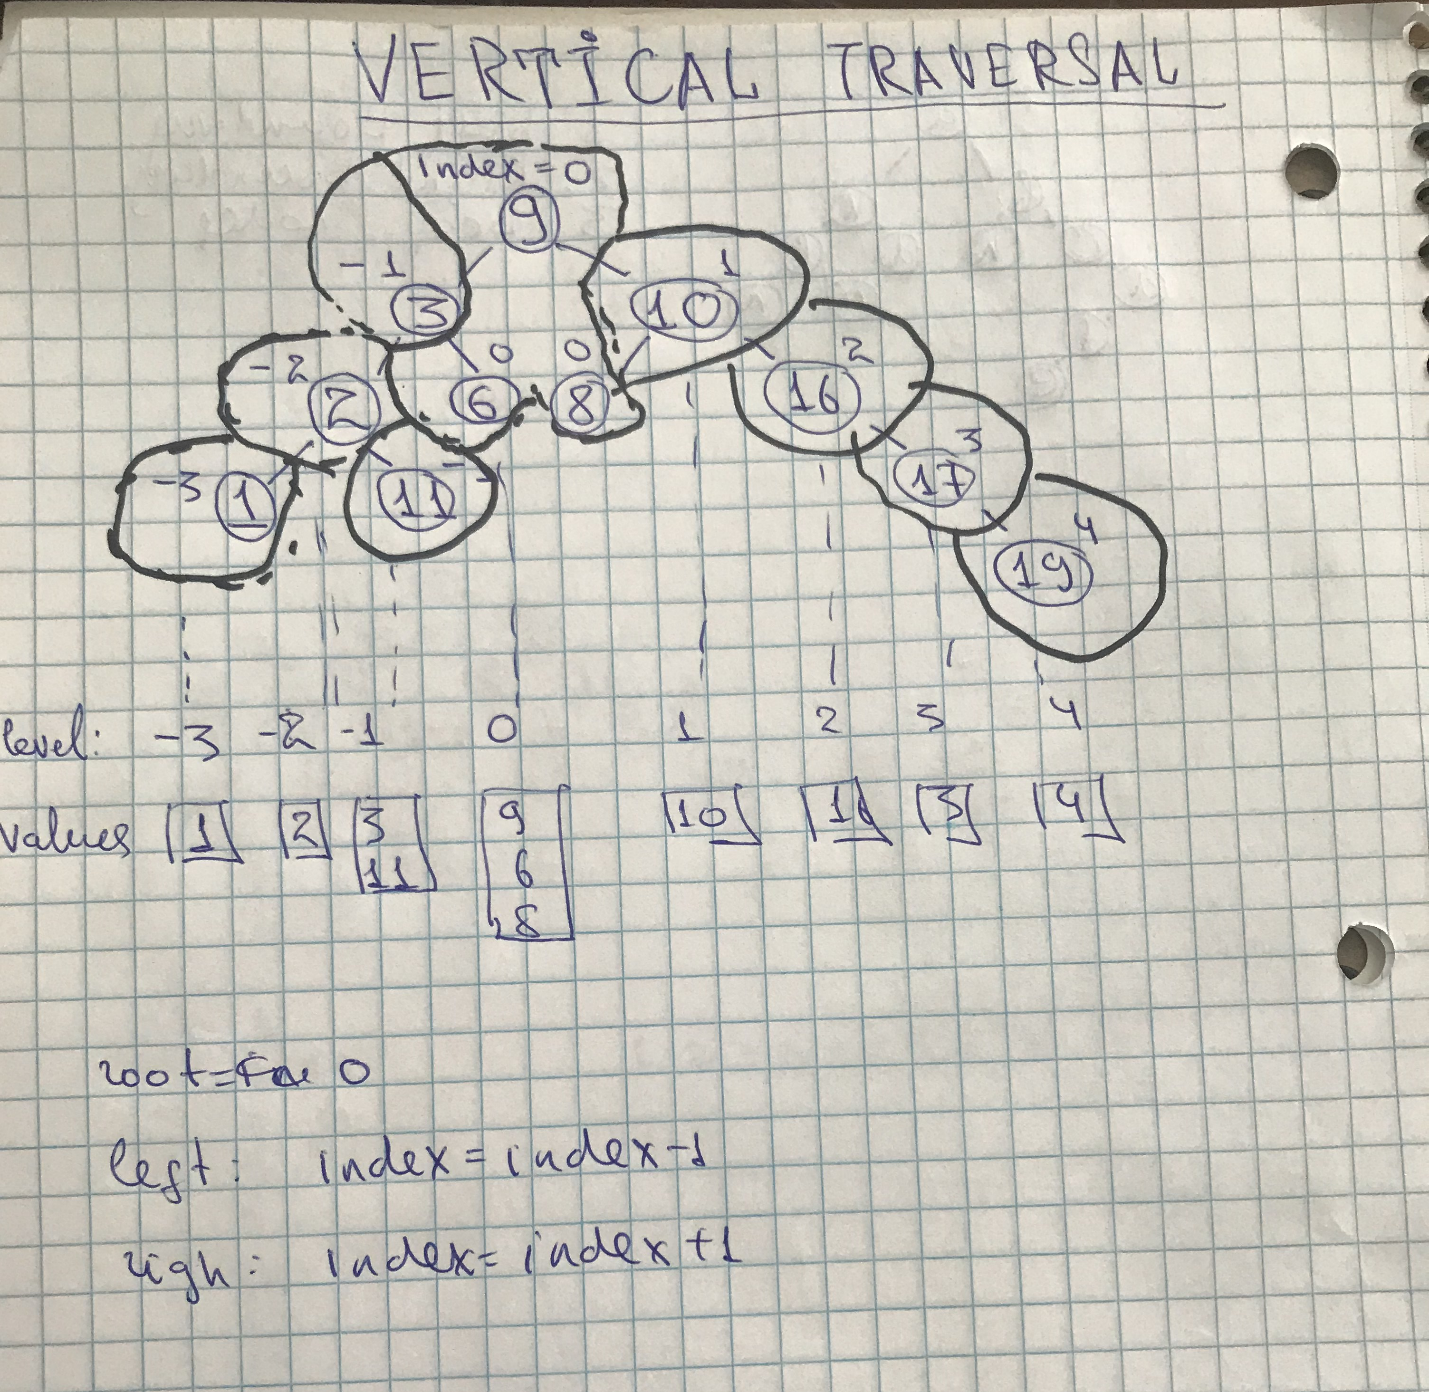 VERTICAL TRAVERSAL
index = 0
9
-1 1
3 10
-2 0 0 2
2 6 8 16
-3 -1 3
1 11 17
4
19
level: -3 -2 -1 0 1 2 3 4
Values 1 2 3 9 10 16 3 4
11 6
8
root = 0
left: index = index-1
righ: index = index +1